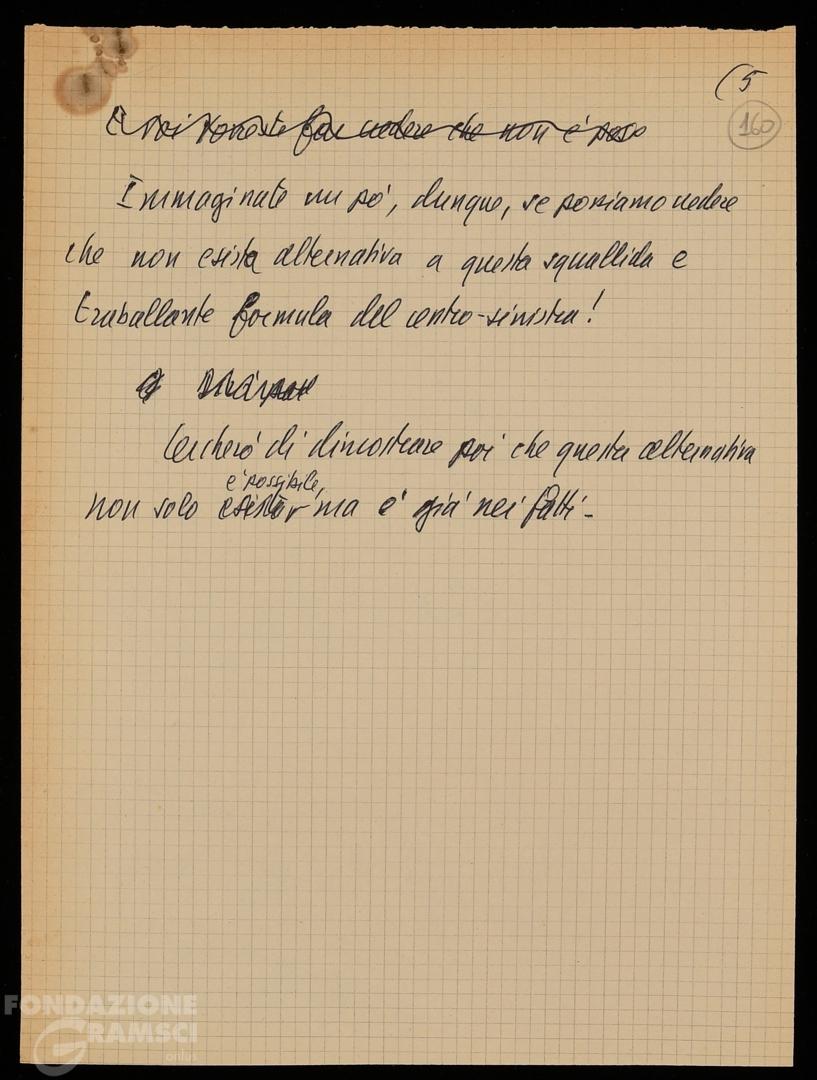 (5
160
E voi vorreste far vedere che non è
Immaginate un pó, dunque, se possiamo vedere
che non esista alternativa a questa squallida e
traballante formula del centro-sinistra!
Cercheró di dimostrare poi che questa alternativa
è possibile,
non solo esiste, ma è già nei fatti -
FONDAZIONE
GRAMSCI
onlus